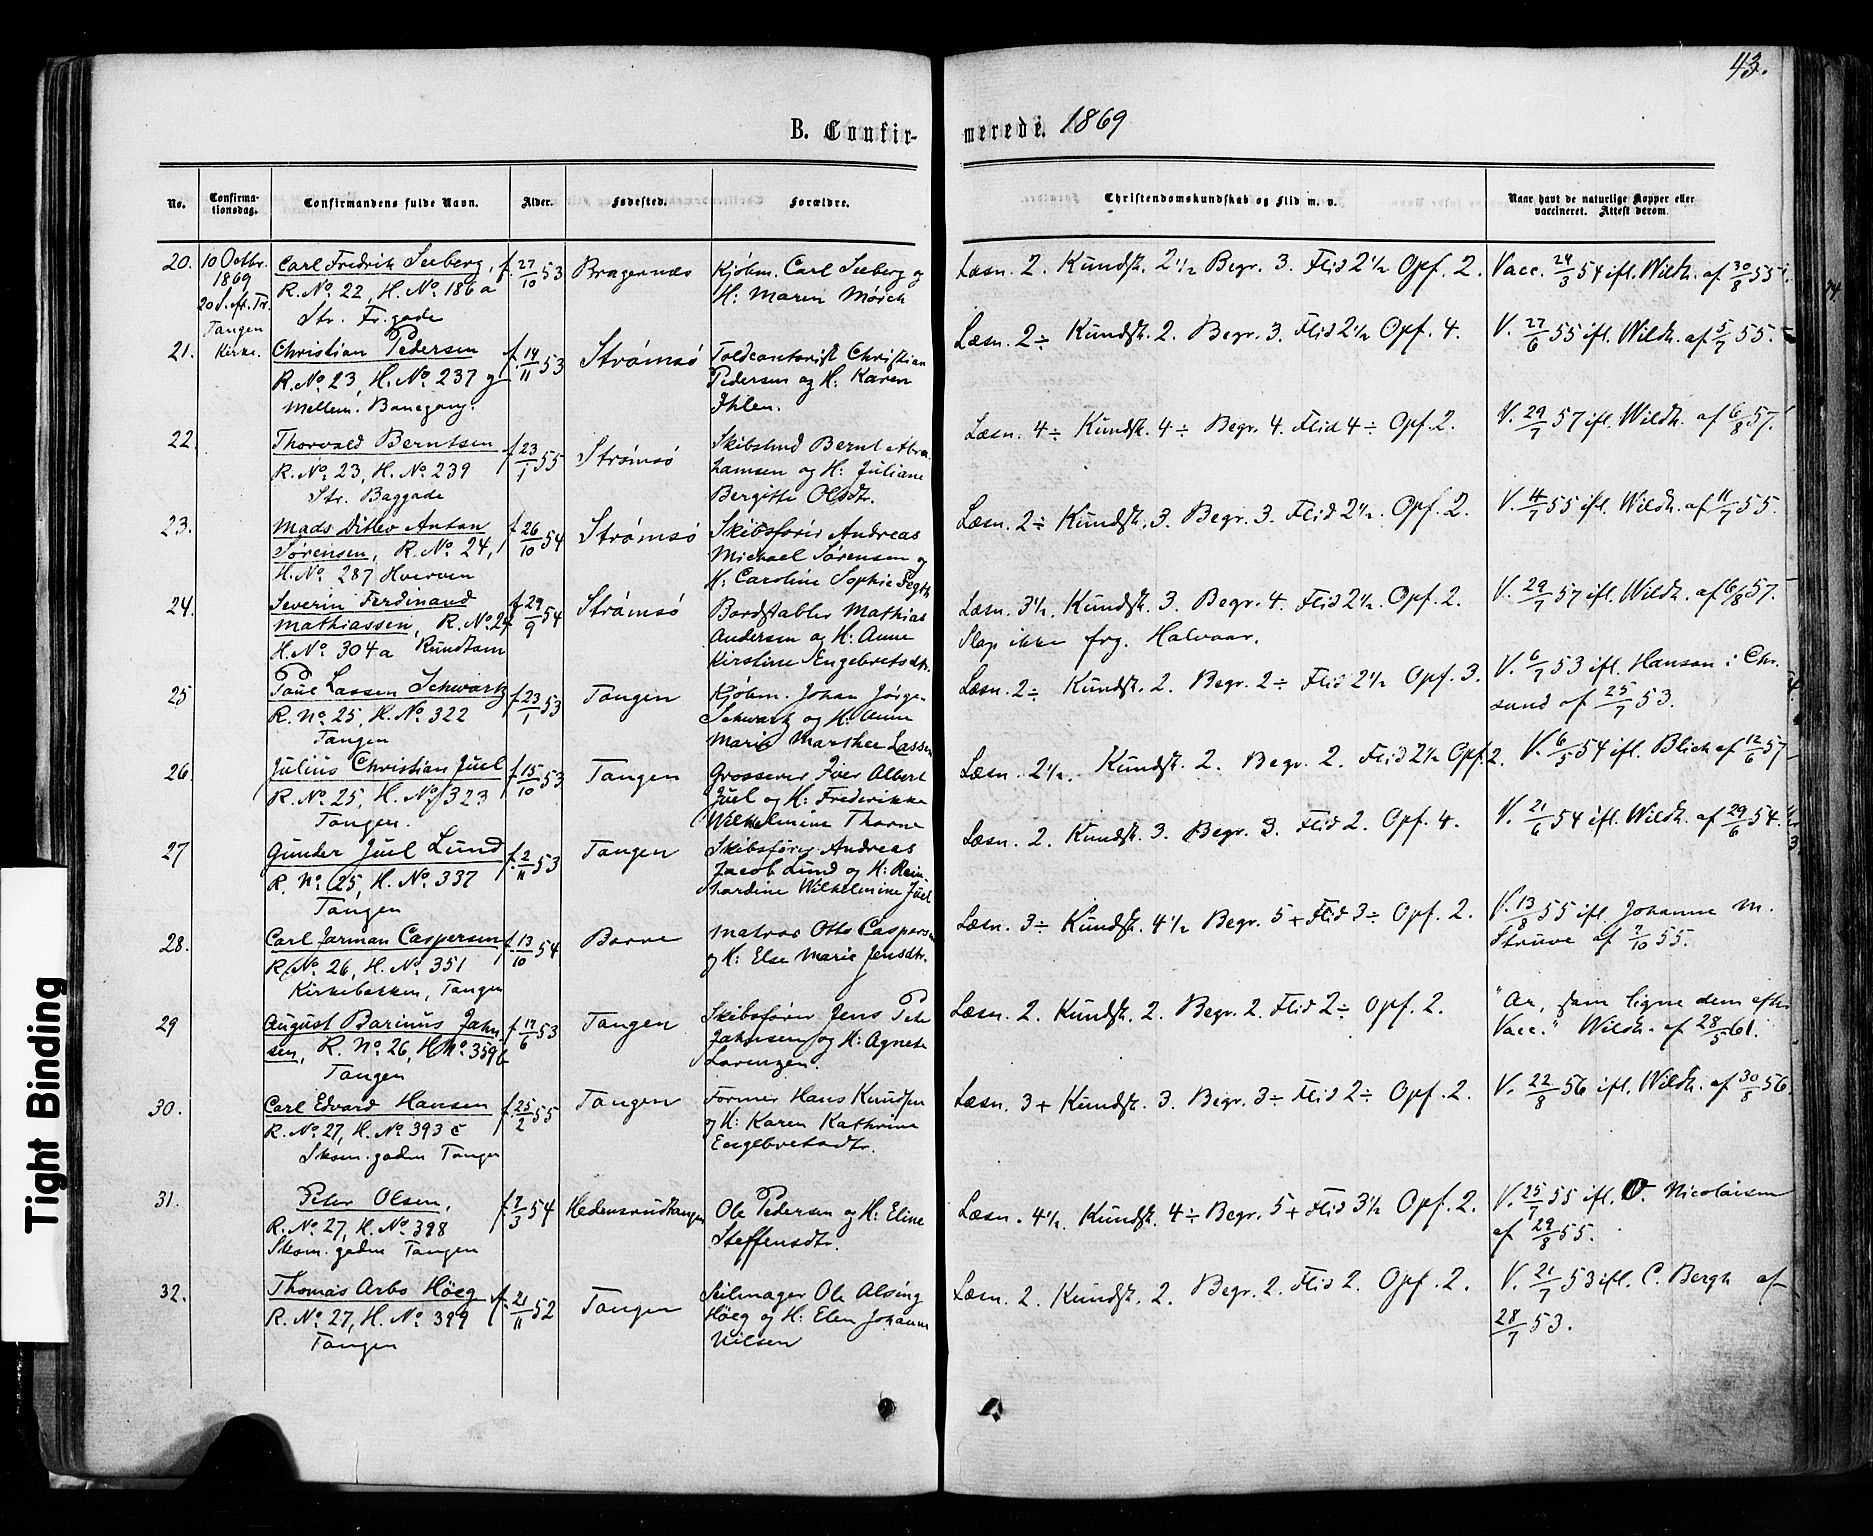 43.
B. Confirmerede. 1869
No. Confirmationsdag. Confirmandens fulde Navn. Alder. Fødested. Forældre. Christendomskundskab og Flid m. v. Naar havt de naturlige Kopper eller vaccineret. Attest derom.
10 Octbr. 1869 20 S. Aft. Tr. Tangen Kirke.
20. Carl Fredrik Seeberg, f. 27/10 53 Bragernæs Kjøbm. Carl Seeberg og Læsn. 2. Kundsk. 2 1/2 Begr. 3. Flid 2 1/2 Opf. 2. Vacc. 24/3 54 ifl. Wildh. af 30/8 55
R. No. 22, H. No. 186 a H: Maren Mörch
Str. Fr. gade
21. Christian Pedersen f. 14/11 53 Strømsø Toldcontorist Christian Læsn. 2 ÷ Kundsk. 2. Begr. 3. Flid 2 1/2 Opf. 4. V. 27/6 55 ifl. Wildh. af 5/7 55.
R. No. 23, H. No. 237 og Pedersen og H: Karen
Mellem. Banegang. Ihlen.
22. Thorvald Berntsen f. 23/1 55 Strømsø Skibstmd Bernt Abra- Læsn. 4 ÷ Kundsk. 4 ÷ Begr. 4. Flid 4 ÷ Opf. 2. V. 29/7 57 ifl. Wildh. af 6/8 57.
R. No. 23, H. No. 239 hamsen og H: Juliane
Str. Baggade Bergitte Olsdtr.
23. Mads Ditlev Anton f. 26/10 54 Strømsø Skibsfører Andreas Læsn. 2 ÷ Kundsk. 3. Begr. 3. Flid 2 1/2. Opf. 2. V. 4/7 55 ifl. Wildh. af 11/7 55.
Sørensen, R. No. 24, Michael Sørensen og
H. No. 287 Hverven H: Caroline Sophie
24. Severin Ferdinand f. 29/9 54 Strømsø Bordstabler Mathias Læsn. 3 1/2. Kundsk. 3. Begr. 4. Flid 2 1/2. Opf. 2. V. 29/7 57 ifl. Wildh. af 6/8 57.
Mathiassen, R. No. 24 Andersen og H: Anne Slap ikke frg. Halvaar.
H. No. 304 a Rundtom Kirstine Engebretsdtr.
25 Paul Lassen Schwartz f. 23/1 53 Tangen Kjøbm. Johan Jörgen Læsn. 2 ÷ Kundsk. 2. Begr. 2 ÷ Flid 2 1/2 Opf. 3. V. 6/7 53 ifl. Hanson i Chr.
R. No. 25, H. No. 322 Schwartz og H: Anne sund af 25/7 53.
Tangen Marie Marthee Lassen
26 Julius Christian Juel f. 15/10 53 Tangen Grosserer Iver Albert Læsn. 2 1/2. Kundsk. 2. Begr. 2. Flid 2 1/2 Opf. 2. V. 6/5 54 ifl. Blich af 12/6 57
R. No. 25, H. No. 323 Juel og H: Frederikke
Tangen. Wilhelmine Thorne
27 Gunder Juel Lund f. 2/11 53 Tangen Skibsfører Andreas Læsn. 2. Kundsk. 3. Begr. 3. Flid 2. Opf. 4. V. 21/6 54 ifl. Wildh. af 29/6 54.
R. No. 25, H. No. 337 Jacob Lund og H: Rein-
Tangen hardine Wilhelmine Juel
28. Carl Jarman Caspersen f. 13/10 54 Borre Matros Otto Caspersen Læsn. 3 ÷ Kundsk. 4 1/2 Begr. 5 + Flid 3 ÷ Opf. 2. V. 13/8 55 ifl. Johanne M.
R. No. 26, H. No. 351 og H: Else Marie Jensdtr. Struve af 7/10 55.
Kirkebakken, Tangen
29 August Barinus Jahn- f. 17/6 53 Tangen Skibsfører Jens Peter Læsn. 2. Kundsk. 2. Begr. 2. Flid 2 ÷ Opf. 2. "Ar, som ligne dem efter
sen, R. No. 26, H. No. 359 b Jahnsen og H: Agnete Vacc." Wildh. af 28/5 61.
Tangen Lorenzen.
30. Carl Edvard Hansen f. 25/2 55 Tangen Former Hans Knudsen Læsn. 3 + Kundsk. 3. Begr. 3 ÷ Flid 2 ÷ Opf. 2. V. 22/8 56 ifl. Wildh. af 30/8 56.
R. No. 27, H. No. 393 c og H: Karen Kathrine
Skom. gaden Tangen Engebretsdtr.
31. Peter Olsen, f. 7/3 54 Hedensrudtangen Ole Pedersen og H: Eline Læsn. 4 1/2. Kundsk. 4 ÷ Begr. 5 + Flid 3 1/2 Opf. 2. V. 25/7 55 ifl. O. Nicolaisen
R. No. 27, H. No. 398 Steffensdtr. af 29/8 55.
Skom. gaden Tangen
32. Thomas Arbo Höeg f. 21/11 52 Tangen Seilmager Ole Alsing Læsn. 2. Kundsk. 2. Begr. 2. Flid 2. Opf. 2. V. 21/7 53 ifl. C. Bergh af
R. No. 27, H. No. 399 Höeg og H: Elen Johanne 28/7 53.
Tangen Nilsen
Tight Binding